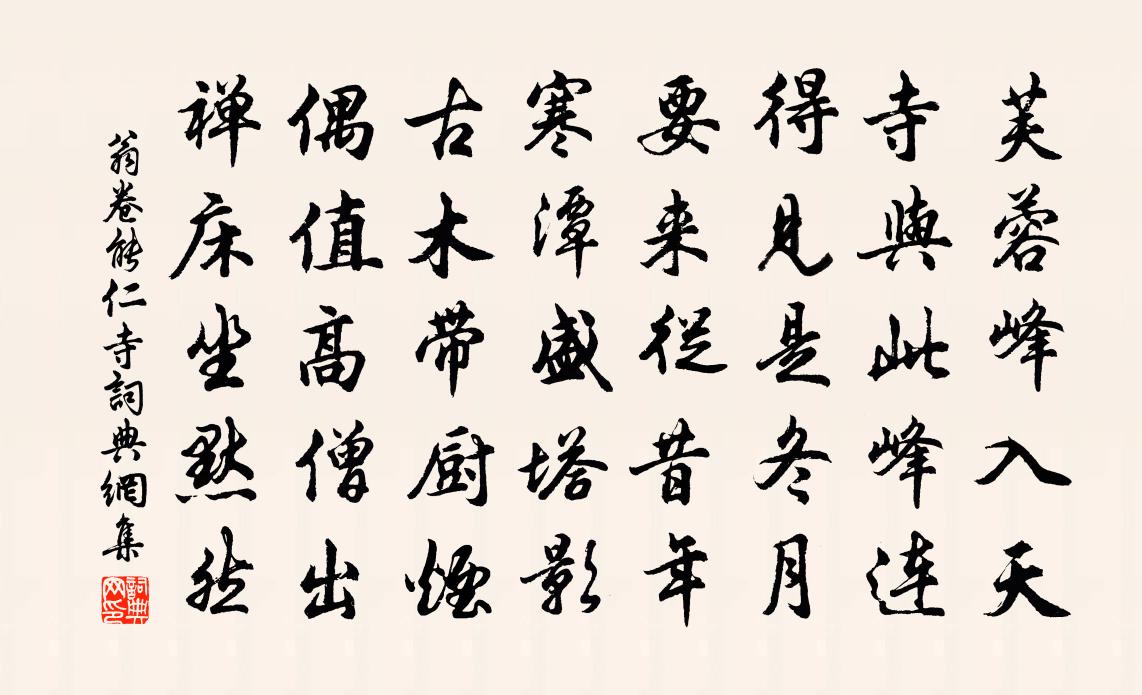 芙蓉峰入天
寺與此峰連
得見是冬月
要来從昔年
寒潭盛塔影
古木帶厨煙
偶值高僧出
禅床坐默然
翁卷能仁寺詞典網集
詞典网印